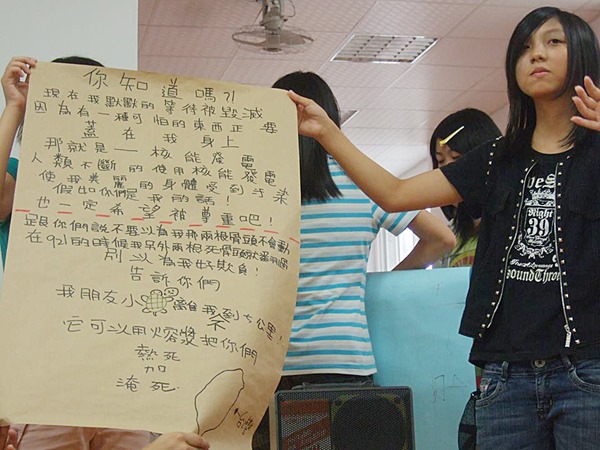 你知道嗎?!
現在我默默的等待被毀滅
因為有一種可怕的東西正要
蓋在我身上
那就是——核能發電
人類不斷的使用核能發電
使我美麗的身體受到污染
假如你們是我的話!
也一定希望被尊重吧!
跟你們說不要以為我褲兩根骨頭不會動
在921的時候我另外兩根死骨頭就
別以為我好欺負!
告訴你們
我朋友小 離我不到5公里!
它可以用熔漿把你們
熱死
加
淹死.
Night
39
oundThron